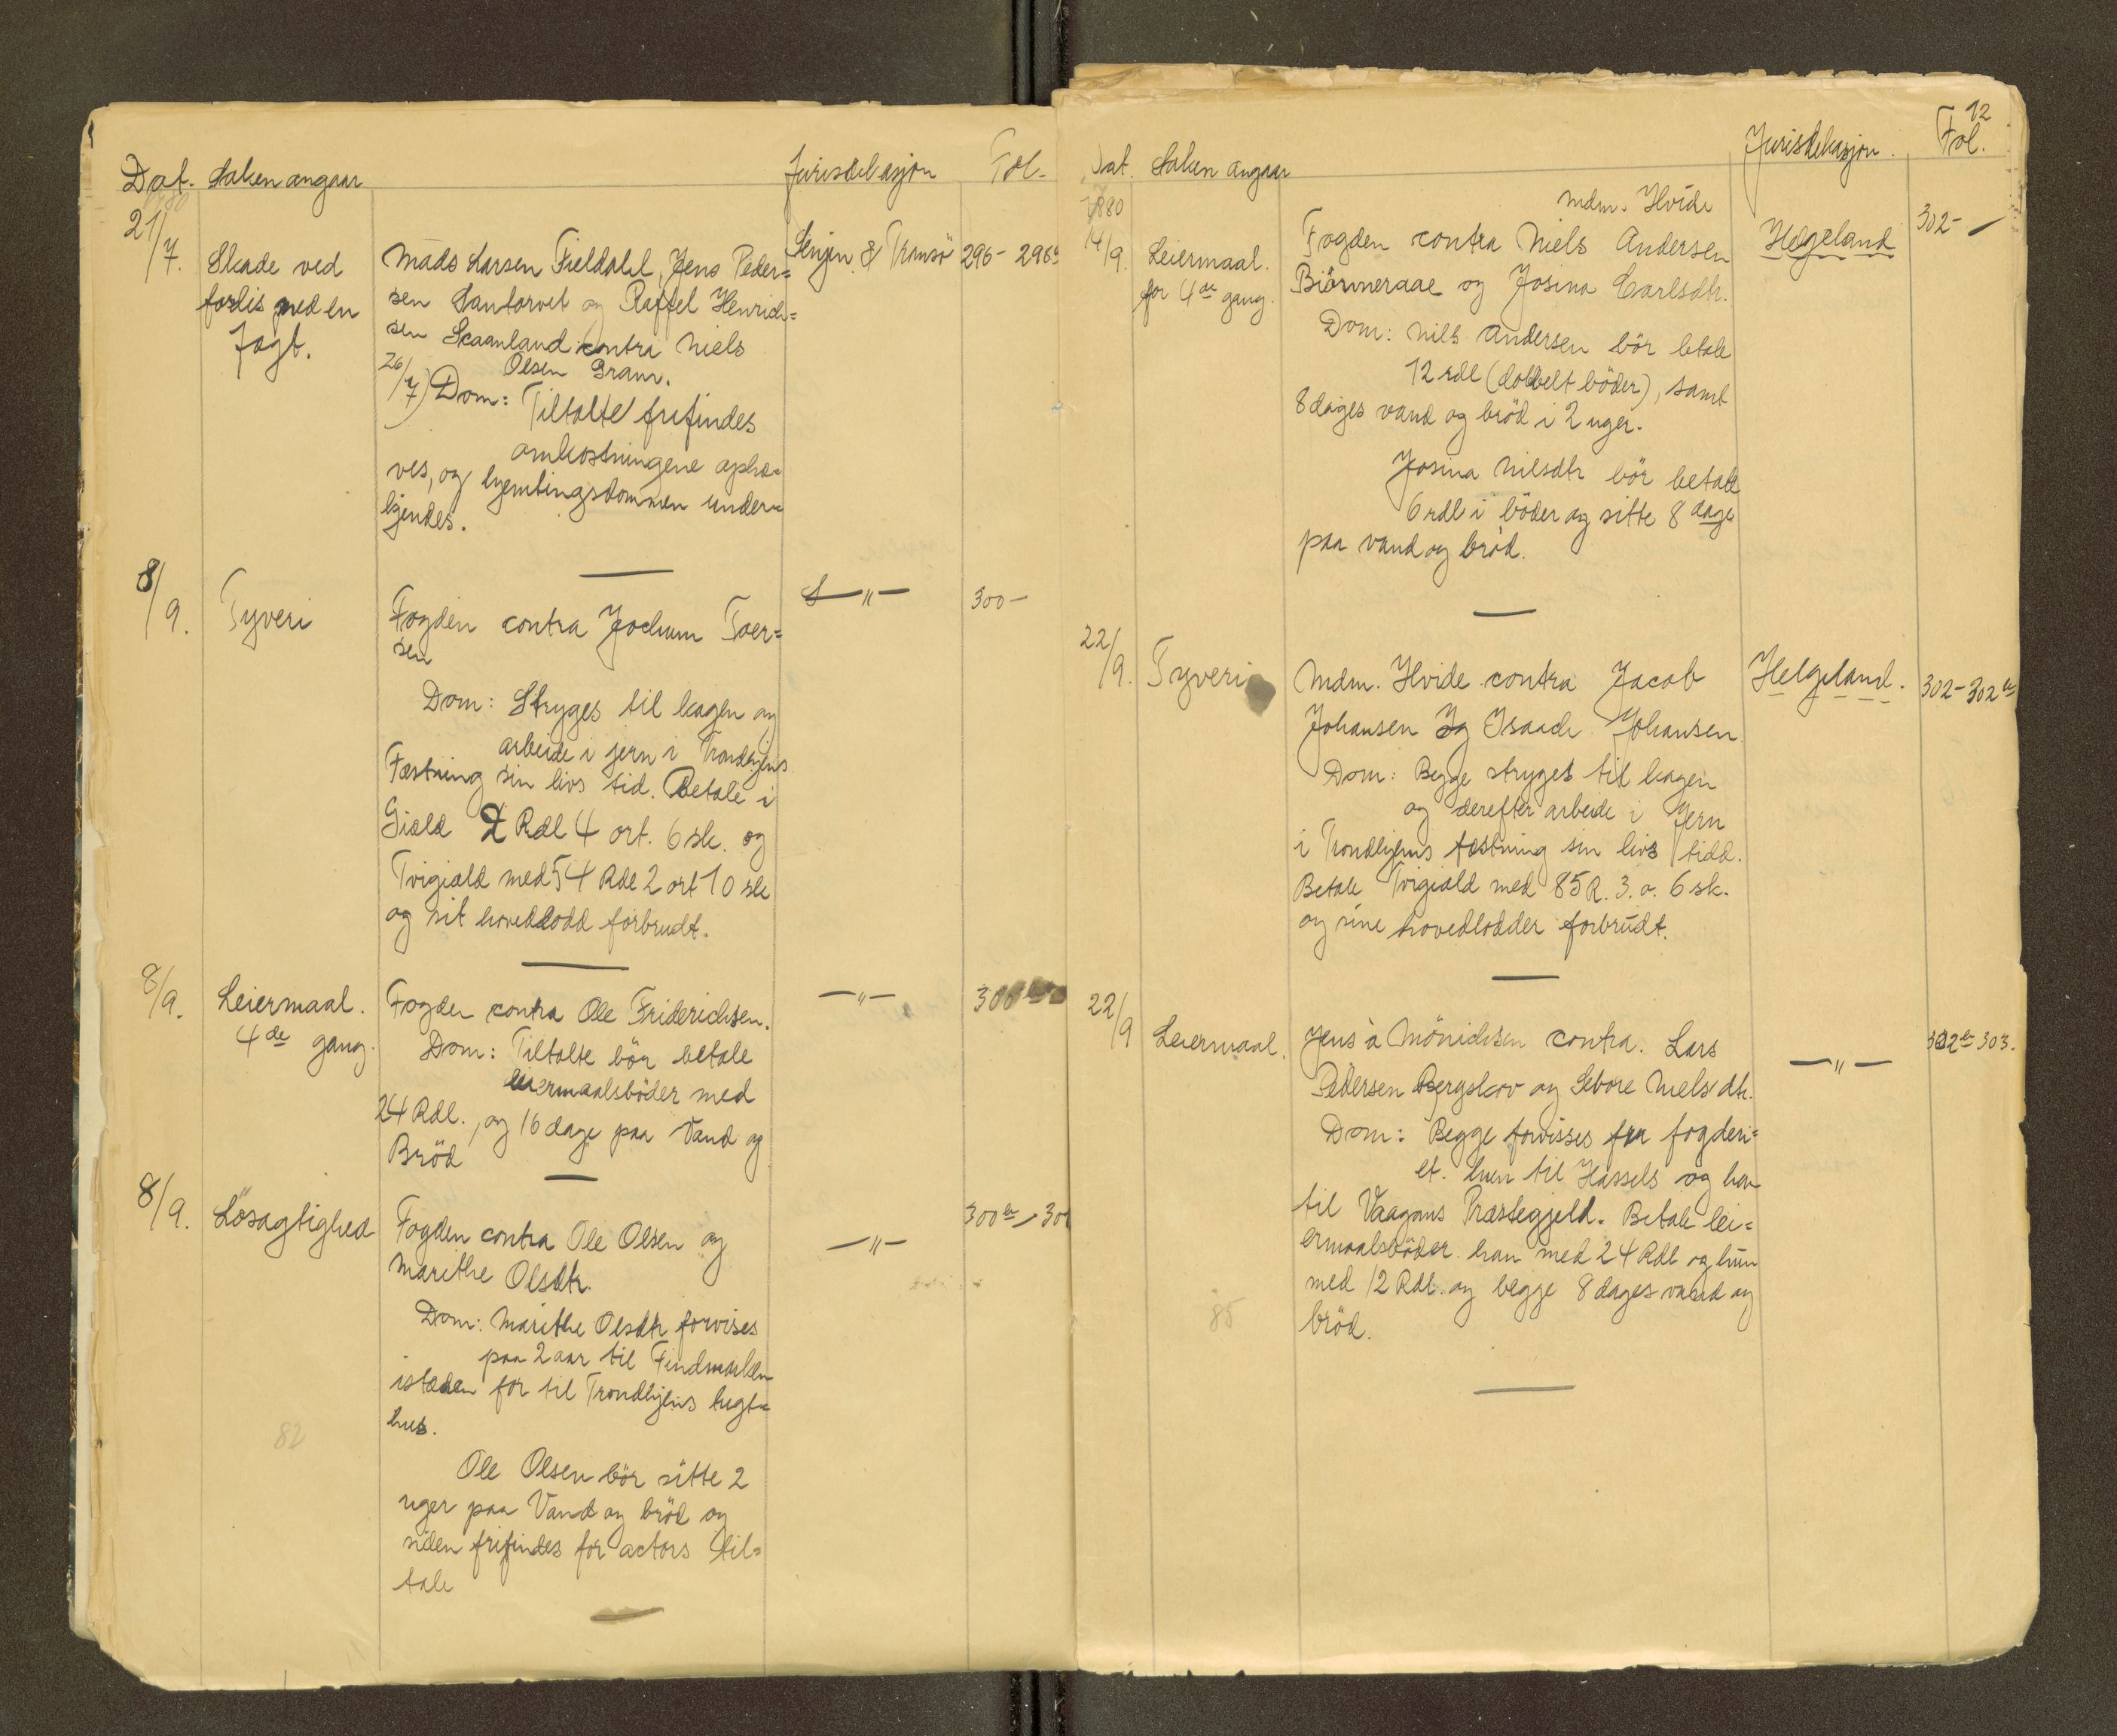 Dat. Saken angaar Jurisdikasjon Fol.
21/7. Skade ved
forlis med en
Jagt.
Mads Larsen Fieldahl, Jens Peder=
sen Santorvet og Raffel Henrich=
sen Skaanland contra Niels
Olsen Gram.
26/7) Dom: Tiltalte frifindes
omkostningene ophæ=
ves, og hjemtingsdommen under=
kjendes.
Senjen & Tromsö 296-
8/9. Tyveri
Fogden contra Jochum Toer=
sen
Dom: Stryges til kagen og
arbeide i jern i Trondhjems
Fæstning sin livs tid. Betale i
Giæld 2 Rdl 4 ort. 6 sk. og
Tvigiæld med 54 Rdl 2 ort 10 sk
og sit hovedlodd forbrudt.
—"— 300-
8/9. Leiermaal.
4de gang.
Fogden contra Ole Friderichsen.
Dom: Tiltalte bör betale
leiermaalsböder med
24 Rdl., og 16 dage paa Vand og
Bröd
—"— 300
8/9. Lösagtighed
Fogden contra Ole Olsen og
Marithe Olsdtr.
Dom: Marithe Olsdtr forvises
paa 2 aar til Findmarken
istæden for til Trondhjems tugt=
hus.
Ole Olsen bör sitte 2
uger paa Vand og bröd og
siden frifindes for actors til=
tale
—"— 300b - 301
82
12
Dat. Saken angaar Jurisdikasjon. Fol.
1780
14/9. Leiermaal.
for 4de gang.
mdm. Hvide
Fogden contra Niels Andersen
Biörnneraae og Josina Carlsdtr.
Dom: Nils Andersen bör betale
12 rdl (dobbelt böder), samt
8 dages vand og bröd i 2 uger.
Josina Nilsdtr bör betale
6 rdl i böder og sitte 8 dage
paa vand og bröd.
Helgeland 302-
22/9. Tyveri
Mdm. Hvide contra Jacob
Johansen og Isaach Johansen.
Dom: Begge stryges til kagen
og derefter arbeide i Jern
i Trondhjems fæstning sin livs tidd.
Betale Tvigiæld med 85 R. 3. o. 6 sk.
og sine hovedlodder forbrudt.
Helgeland. 302-302b
22/9 Leiermaal.
Jens à Mönichsen contra. Lars
Pedersen Bergskov og Sebore Nielsdtr.
Dom: Begge forvisses fra fogderi=
et. hun til Hassels og han
til Vaagans Præstegjeld. Betale lei=
ermaalsböder. han med 24 Rdl og hun
med 12 Rdl. og begge 8 dages vand og
bröd.
—"— 302b 303.
85